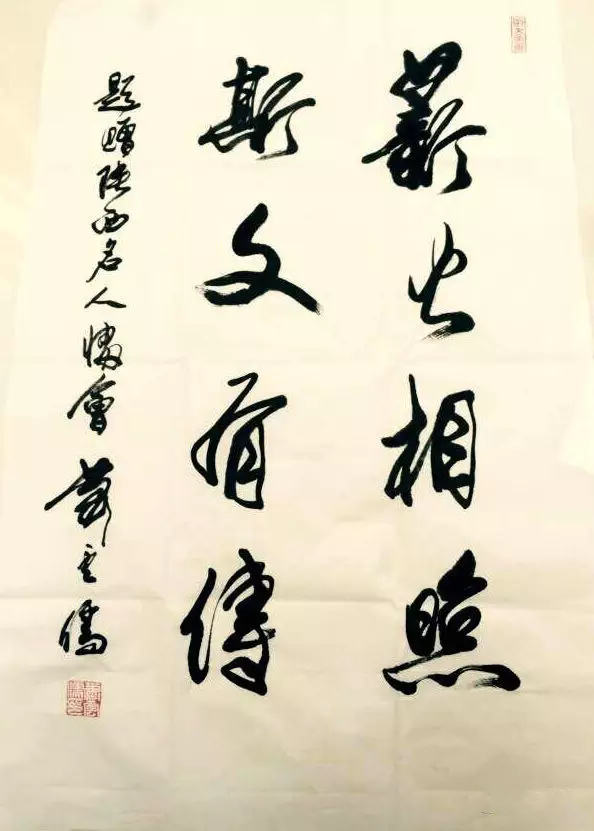 薪火相照
斯文有傳
題贈陝西名人協會 蕭云儒